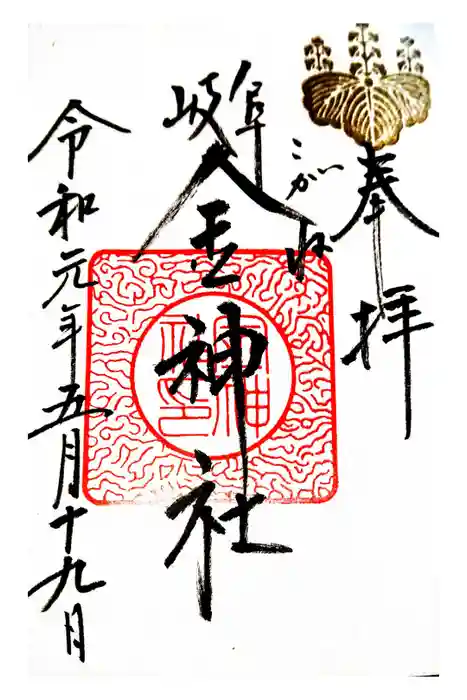 奉拝
岐阜
こがね
金神社
令和元年五月十九日